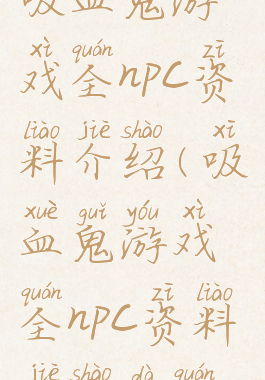 吸血鬼游
xì quán zī
戏全npc资
liào jiè shào xī
料介绍(吸
xuè guǐ yóu xì
血鬼游戏
quán zī liào
全npc资料
jiè shào dà quán